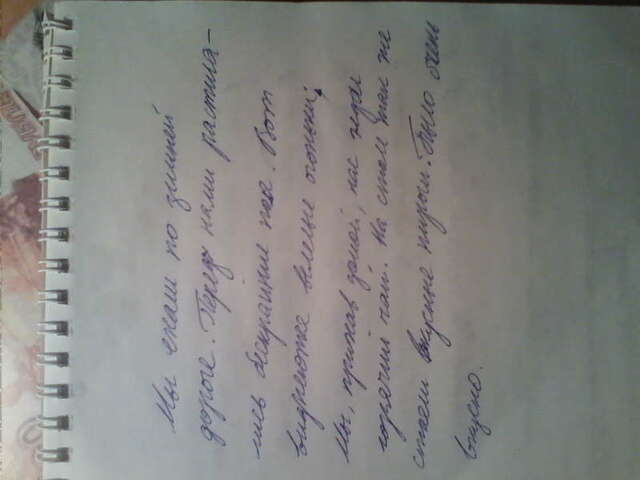 Мы ехали по зимней
дороге. Перед нами расстила-
лись бескрайние поля. Вот
виднеются вдалеке огоньки.
Мы, приехав домой, нас ждал
горячий чай. На столе так же
стояли вкусные пироги. Было очень
вкусно.